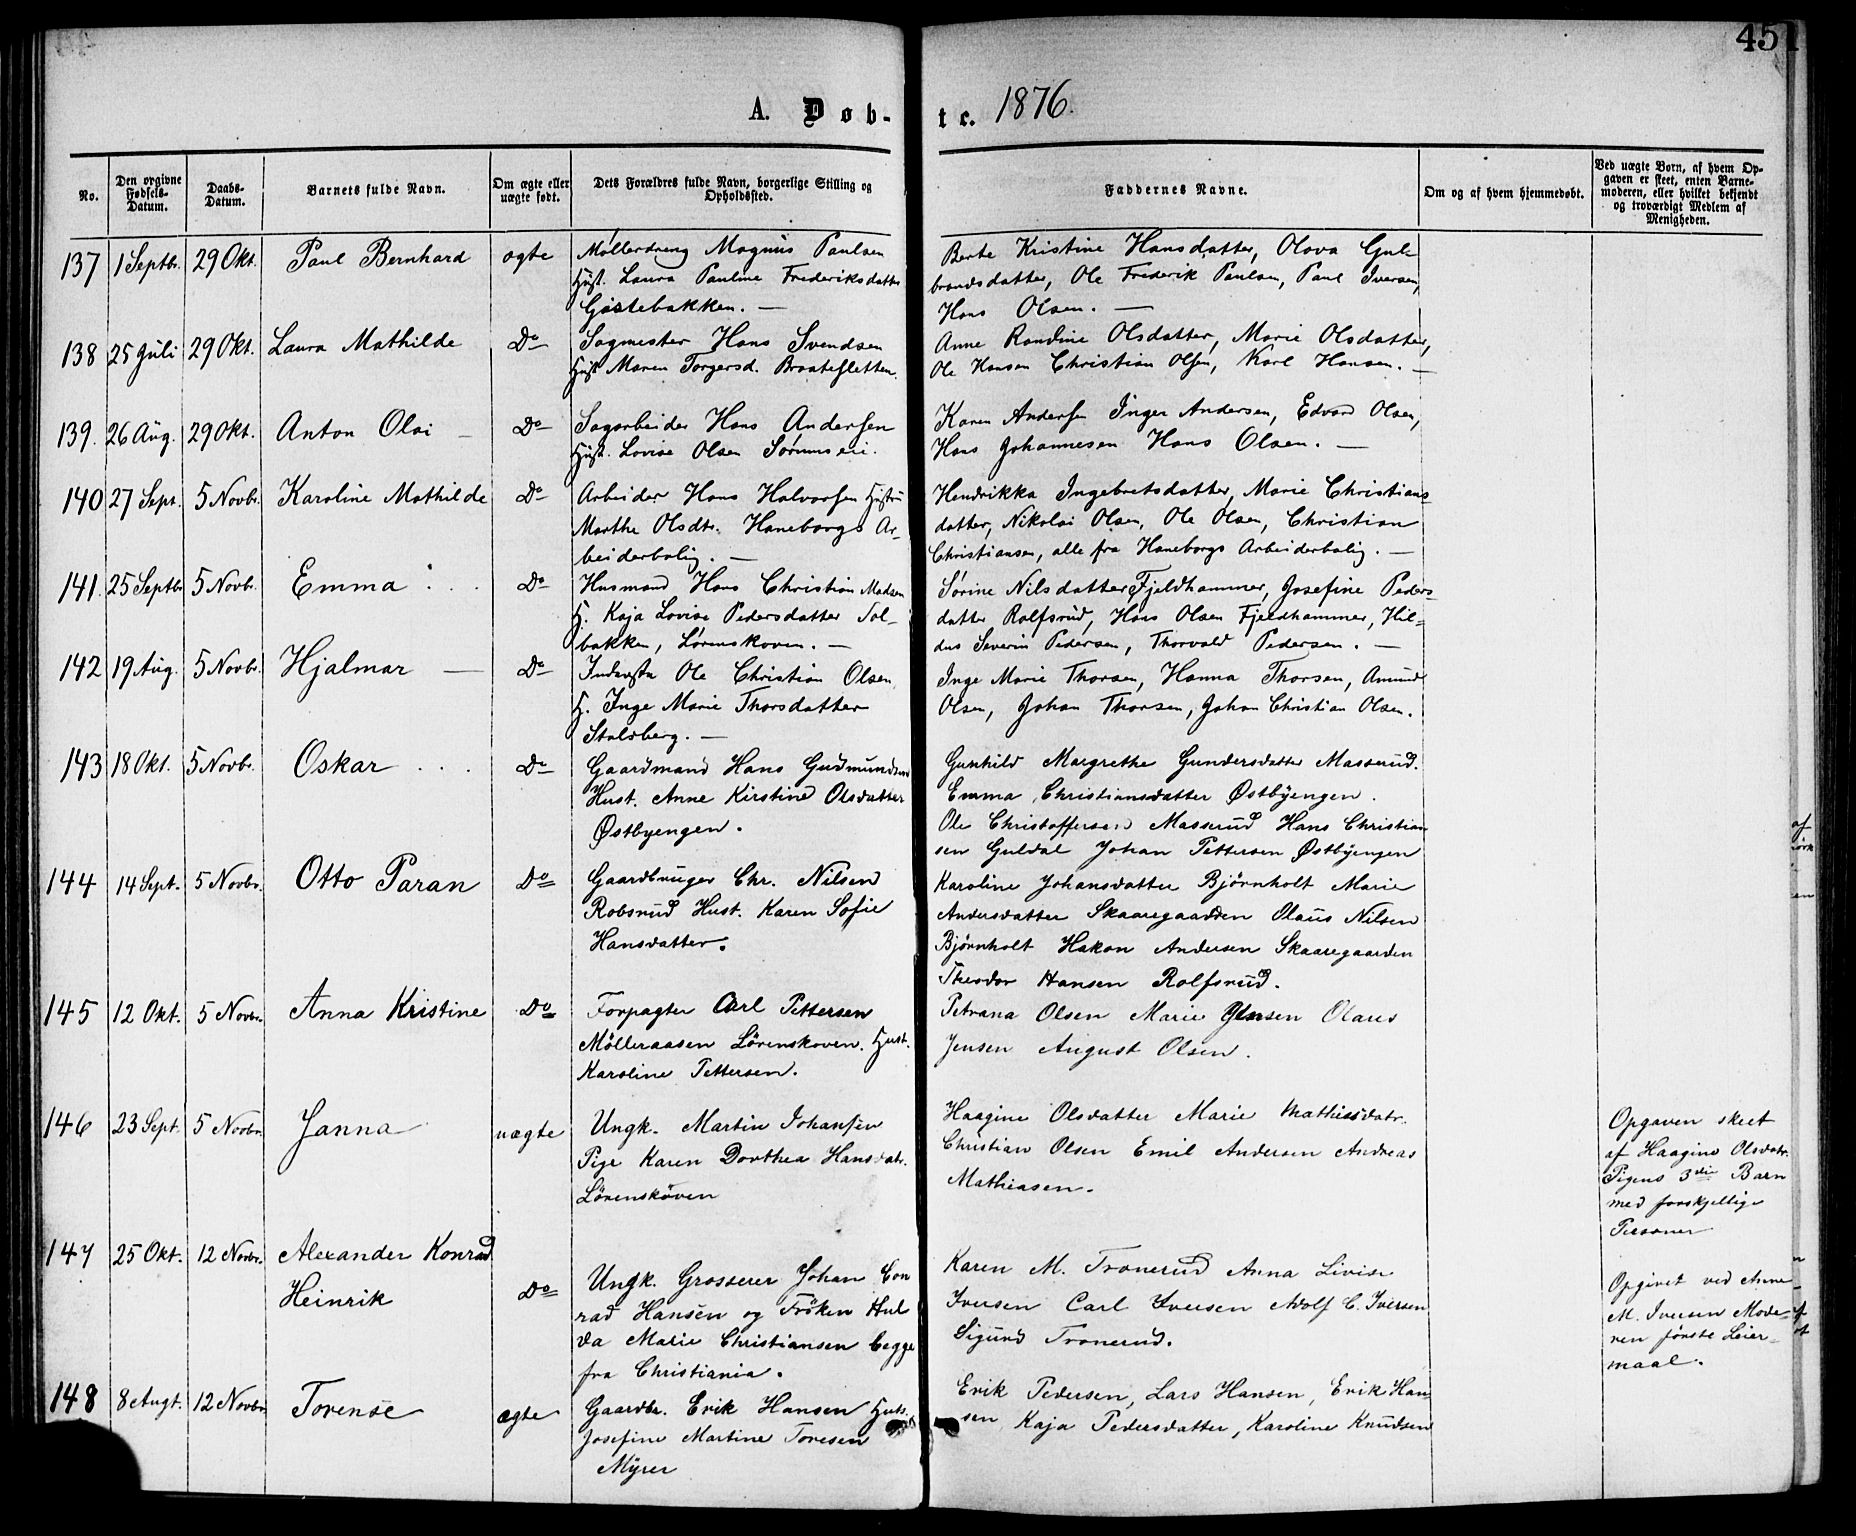 45
A. Døb-
te. 1876.
No.
Den opgivne Fødsels-Datum.
Daabs-Datum.
Barnets fulde Navn.
Om ægte eller uægte født.
Dets Forældres fulde Navn, borgerlige Stilling og Opholdssted.
Faddernes Navne.
Om og af hvem hjemmedøbt.
Ved uægte Børn, af hvem Op-
gaven er skeet, enten Barne-
moderen, eller hvilket bekjendt
og troværdigt Medlem af
Menigheden.
137 1 Septbr. 29 Okt. Paul Bernhard ægte
Møllerdreng Magnus Paulsen
Hust. Laura Pauline Frederiksdatter
Gjøstebakken. —
Berte Kristine Hansdatter, Olava Gul-
brandsdatter, Ole Frederik Paulsen, Paul Iversen,
Hans Olsen. —
138 25 Juli 29 Okt. Laura Mathilde Do
Sagmester Hans Svendsen
Hust Maren Torgersd. Braatesletten.
Anne Randine Olsdatter, Marie Olsdatter,
Ole Hansen Christian Olsen, Karl Hansen. —
139. 26 Aug. 29 Okt. Anton Olai — Do
Sagarbeider Hans Andersen
Hust. Lovise Olsen Sørumseie.
Karen Andersen Inger Andersen, Edvard Olsen,
Hans Johannesen Hans Olsen. —
140 27 Sept. 5 Novbr. Karoline Mathilde Do
Arbeider Hans Halvorsen Hustru
Marthe Olsdtr. Haneborgs Ar-
beiderbolig. —
Hendrikka Ingebretsdatter, Marie Christians-
datter, Nikolai Olsen, Ole Olsen, Christian
Christiansen, alle fra Haneborgs Arbeiderbolig. —
141. 25 Septbr 5 Novbr. Emma Do
Husmand Hans Christian Madsen
H. Kaja Lovise Pedersdatter Sol-
bakken, Lørenskoven. —
Sørine Nilsdatter Fjeldhammer, Josefine Peders-
datter Rolfsrud, Hans Olsen Fjeldhammer, Hil-
dus Severin Pedersen, Thorvald Pedersen. —
142 19 Aug. 5 Novbr. Hjalmar — Do
Inderste Ole Christian Olsen,
H. Inge Marie Thorsdatter
Stalsberg. —
Inge Marie Thorsen, Hanna Thorsen, Amund
Olsen, Johan Thorsen, Johan Christian Olsen.
143 18 Okt. 5 Novbr. Oskar Do
Gaardmand Hans Gudmundsen
Hust. Anne Kirstine Olsdatter
Østbyengen.
Gunhild Margrethe Gundersdatter Masserud.
Emma Christiansdatter Østbyengen.
Ole Christoffersen Masserud Hans Christian-
sen Guldal Johan Pettersen Østbyengen
144 14 Sept. 5 Novbr. Otto Paran Do
Gaardbruger Chr. Nilsen
Robsrud Hust. Karen Sofie
Hansdatter.
Karoline Johansdatter Bjørnholt Marie
Andersdatter Skaaregaarden Olaus Nilsen
Bjørnholt Hakon Andersen Skaaregaarden
Theodor Hansen Rolfsrud.
145 12 Okt. 5 Novbr. Anna Kristine Do
Forpagter Carl Pettersen
Mölleraasen Lörenskoven. Hust.
Karoline Pettersen.
Petrana Olsen Marie Jensen Olaus
Jensen August Olsen.
146 23 Sept. 5 Novbr. Janna uægte
Ungk. Martin Johansen
Pige Karen Dorthea Hansdatr.
Lörenskoven
Haagine Olsdatter Marie Mathiasdatr.
Christian Olsen Emil Andersen Andreas
Mathiasen.
Opgaven skeet
af Haagine Olsdatr.
Pigens 3die Barn
med forskjellige
Personer
147 25 Okt. 12 Novbr. Alexander Konrad
Heinrik Do
Ungk. Grosserer Johan Con
rad Hansen og Fröken Hul
da Marie Christiansen begge
fra Christiania.
Karen M. Tronerud Anna Livise
Iversen Carl Iversen Adolf C. Iversen
Sigurd Tronerud.
Opgivet ved Anne
M. Iversen Mode-
ren første Leier-
maal.
148 8 Augt. 12 Novbr. Torense ægte
Gaardbr. Erik Hansen Hust.
Josefine Martine Toresen
Myrer
Erik Pedersen, Lars Hansen, Erik Han
sen, Kaja Pedersdatter, Karoline Knudsen